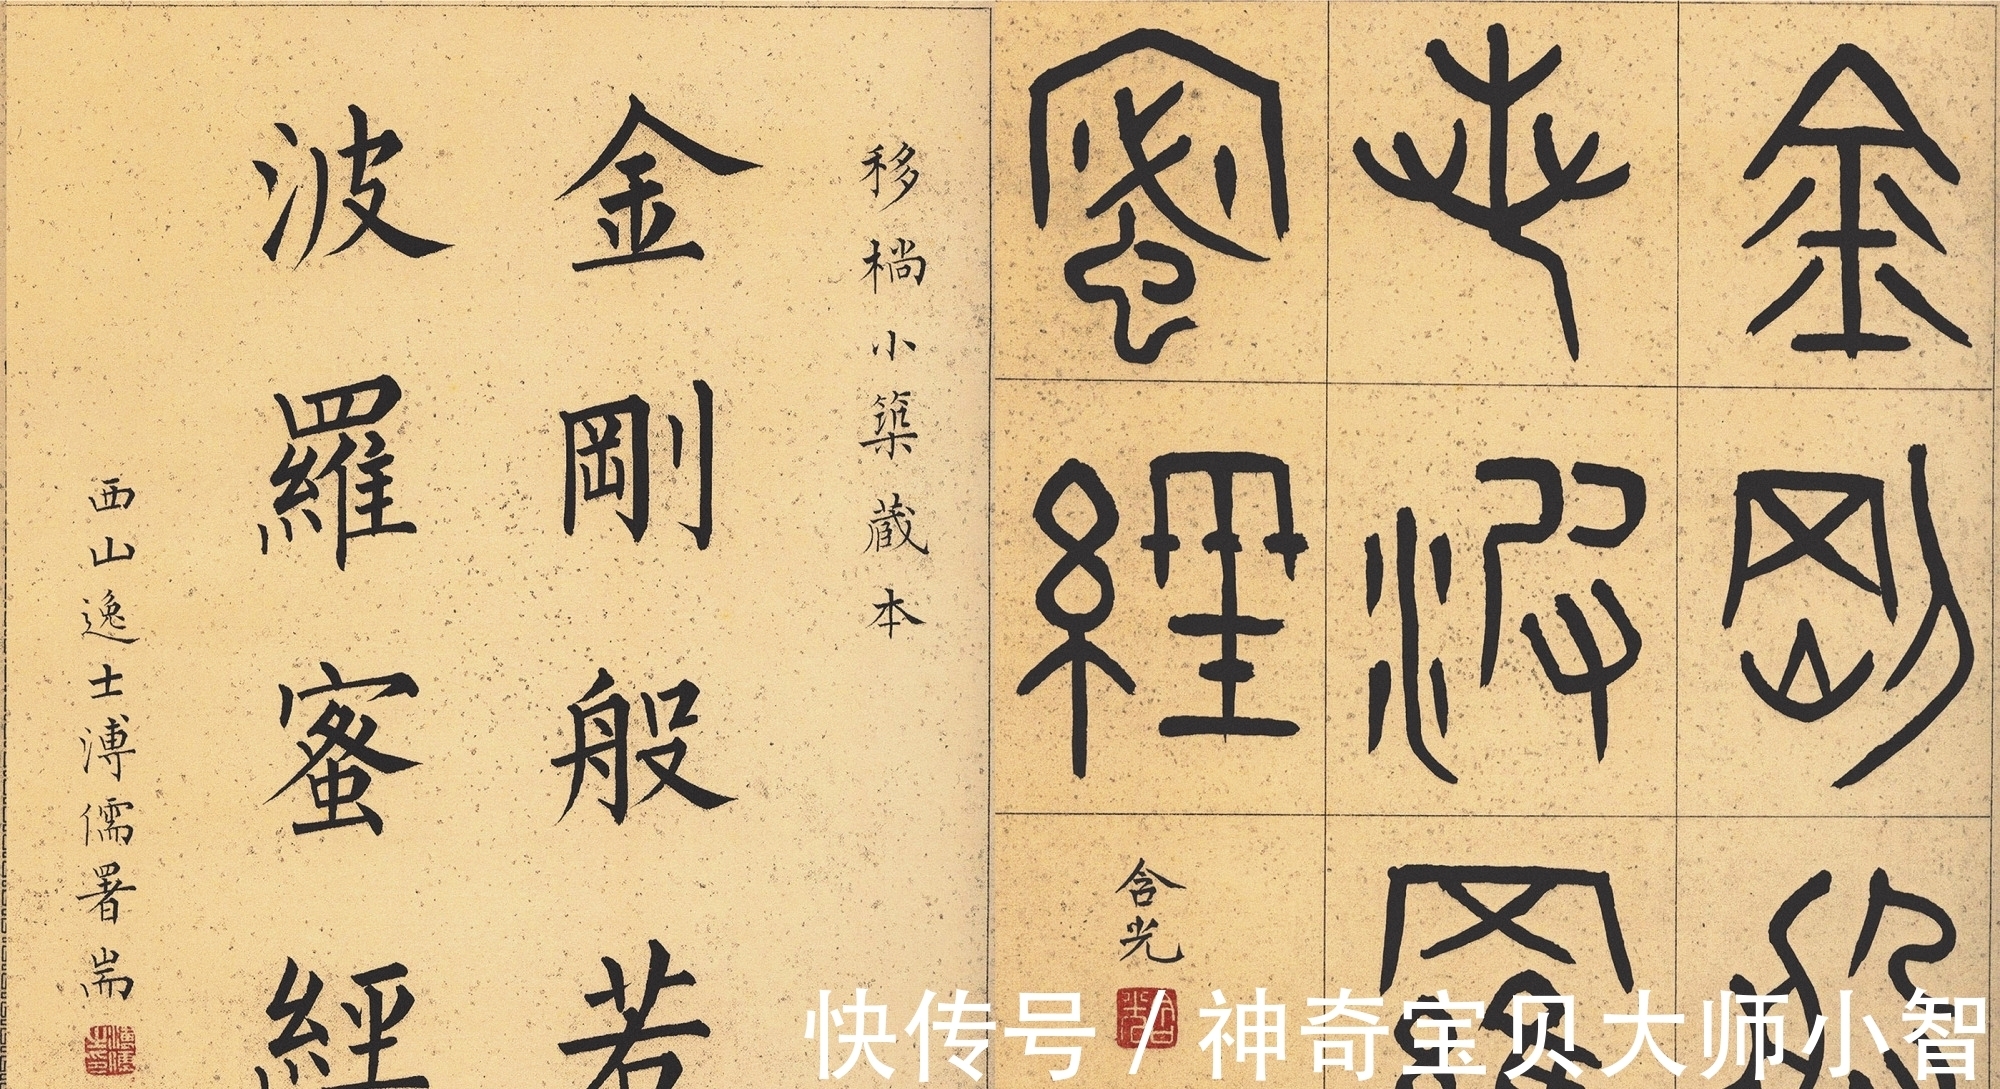 金剛般若
波羅蜜經
移橢小築蔵本
金剛般若
波羅蜜經
西山逸士溥儒署耑
含光
快传号 / 神奇宝贝大师小智